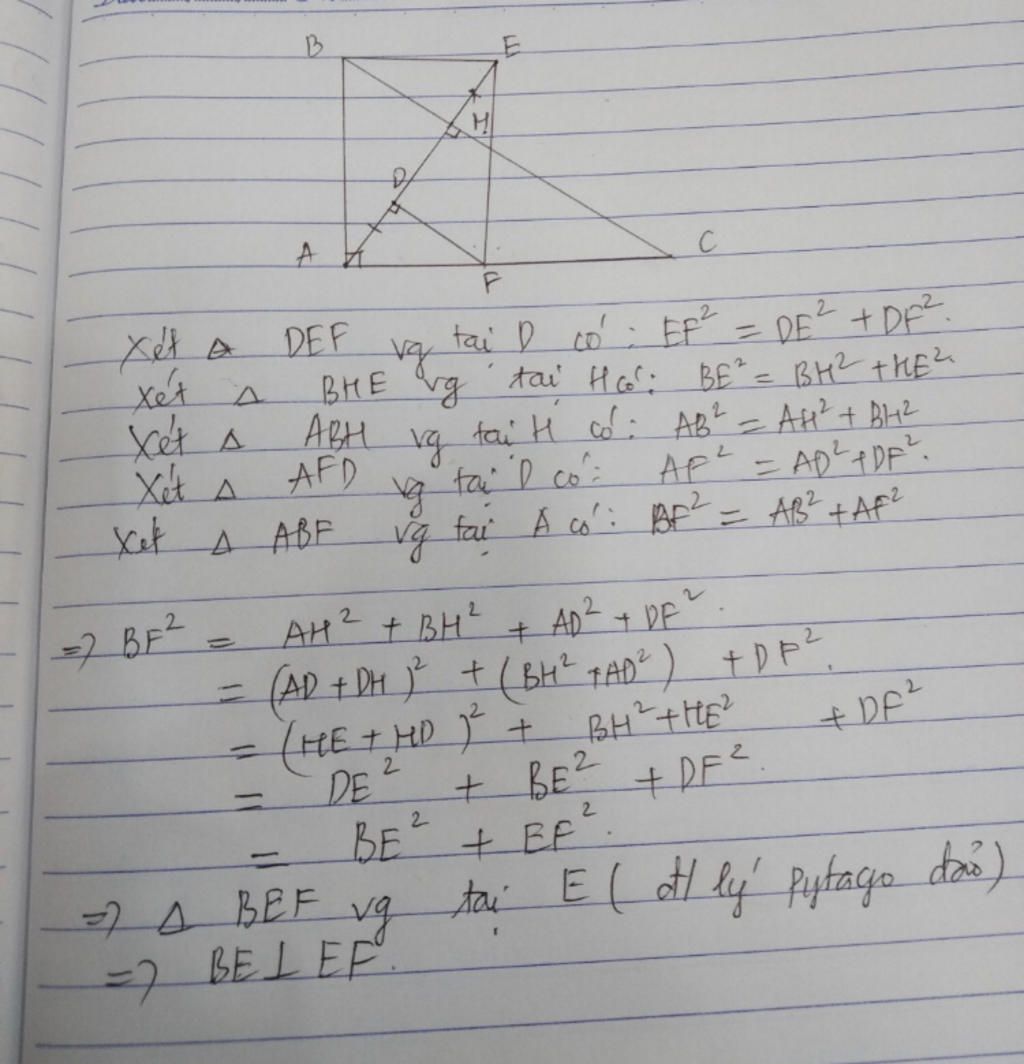 B E
H
D
A C
F
Xét Δ DEF vg tại D có: EF² = DE² + DF².
Xét Δ BHE vg tại H có: BE² = BH² + HE².
Xét Δ ABH vg tại H có: AB² = AH² + BH²
Xét Δ AFD vg tại D có: AF² = AD² + DF².
Xet Δ ABF vg tại A có: BF² = AB² + AF²
=> BF² = AH² + BH² + AD² + DF².
= (AD + DH)² + (BH² + AD²) + DF².
= (HE + HD)² + BH² + HE² + DF²
= DE² + BE² + DF².
= BE² + EF².
=> Δ BEF vg tại E ( đl lý Pytago đảo)
=> BE ⊥ EF.